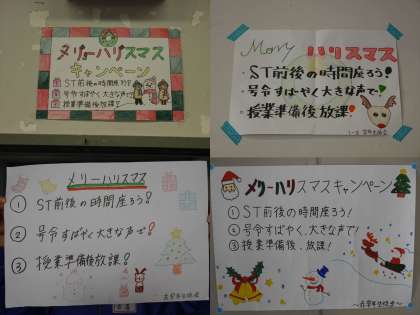 メリーハリスマス
キャンペーン
ST前後の時間座ろう!
号令すばやく大きな声で!
授業準備後放課!
Merry ハリスマス
・ST前後の時間座ろう!
・号令すばやく大きな声で!
・授業準備後放課!
メリーハリスマス
① ST前後の時間座ろう!
② 号令すばやく大きな声で!
③ 授業準備後放課!
メリーハリスマスキャンペーン
①ST前後の時間座ろう!
②号令すばやく、大きな声で!
③授業準備後、放課!